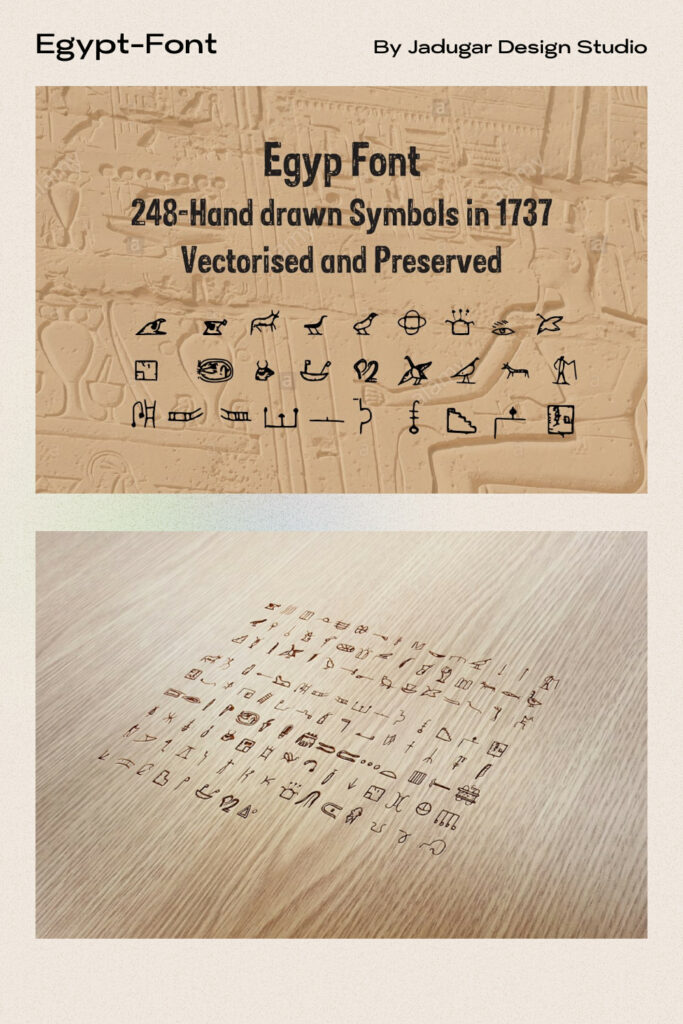 Egypt-Font
By Jadugar Design Studio
Egyp Font
248-Hand drawn Symbols in 1737
Vectorised and Preserved